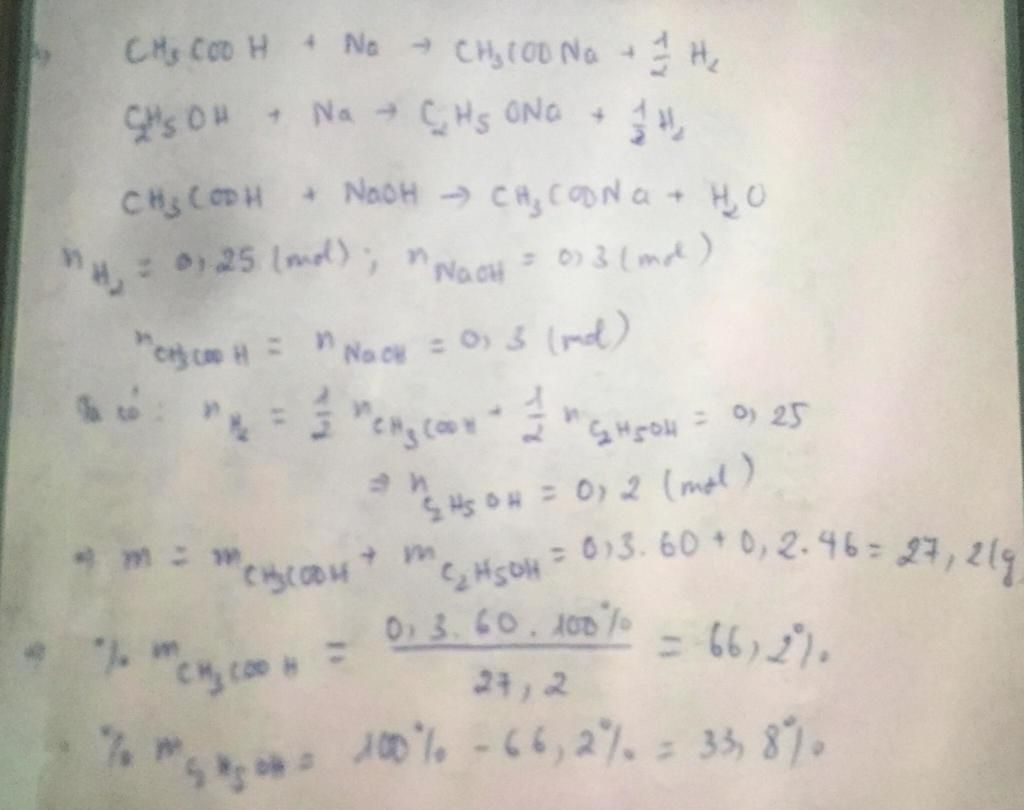 CH₃COOH + Na → CH₃COONa + 1/2 H₂
C₂H₅OH + Na → C₂H₅ONa + 1/2 H₂
CH₃COOH + NaOH → CH₃COONa + H₂O
n H₂ = 0,25 (mol) ; n NaOH = 0,3 (mol)
n CH₃COOH = n NaOH = 0,3 (mol)
Ta có: n H₂ = 1/2 n CH₃COOH + 1/2 n C₂H₅OH = 0,25
⇒ n C₂H₅OH = 0,2 (mol)
⇒ m = m CH₃COOH + m C₂H₅OH = 0,3.60 + 0,2.46 = 27,2(g
⇒ % m CH₃COOH = 0,3.60.100% / 27,2 = 66,2%
% m C₂H₅OH = 100% - 66,2% = 33,8%